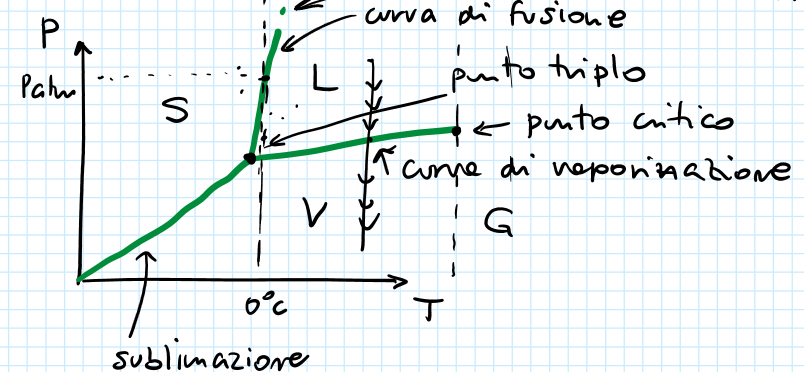 curva di fusione
P
Patm
L
punto triplo
S
punto critico
curva di vaporizzazione
V
G
0°C
T
sublimazione